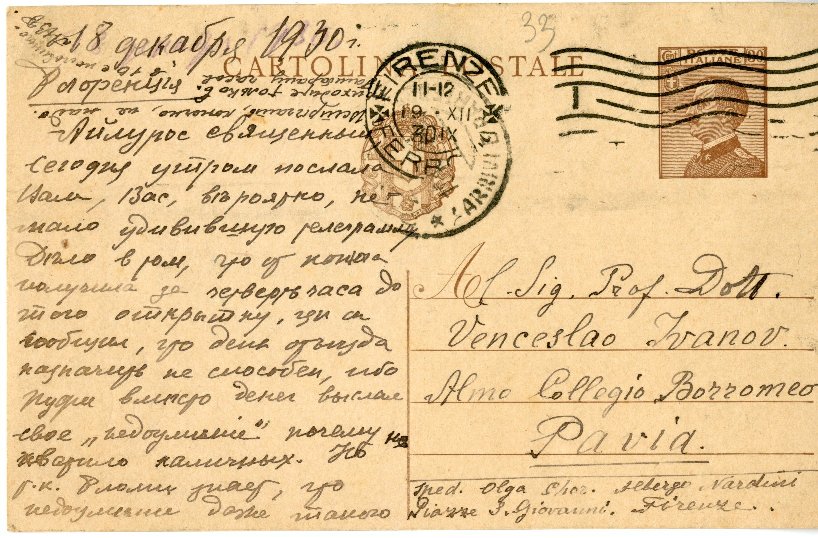 18 декабря 1930 г.
Флоренція
CARTOLINA POSTALE
POSTE ITALIANE 30
35
FIRENZE
FERROVIA
11-12
19 · XII
30 IX
ARRIVI
Айлурос священный
сегодня утром послала
Вам, Вас, вѣроятно, не
мало удивившую телеграмму
Дѣло в том, что от
получила за четверть часа до
того открытку, гдѣ
сообщил, что день отъѣзда
назначить не способен, ибо
вмѣсто денег выслал
свое „недоумѣніе" почему не
хватило наличных. Но
т.к. знает, что
недоумѣніе даже такого
Al Sig. Prof. Dott.
Venceslao Ivanov.
Almo Collegio Borromeo
Pavia.
Sped. Olga Schor. Albergo Nardini
Piazza S. Giovanni. Firenze.